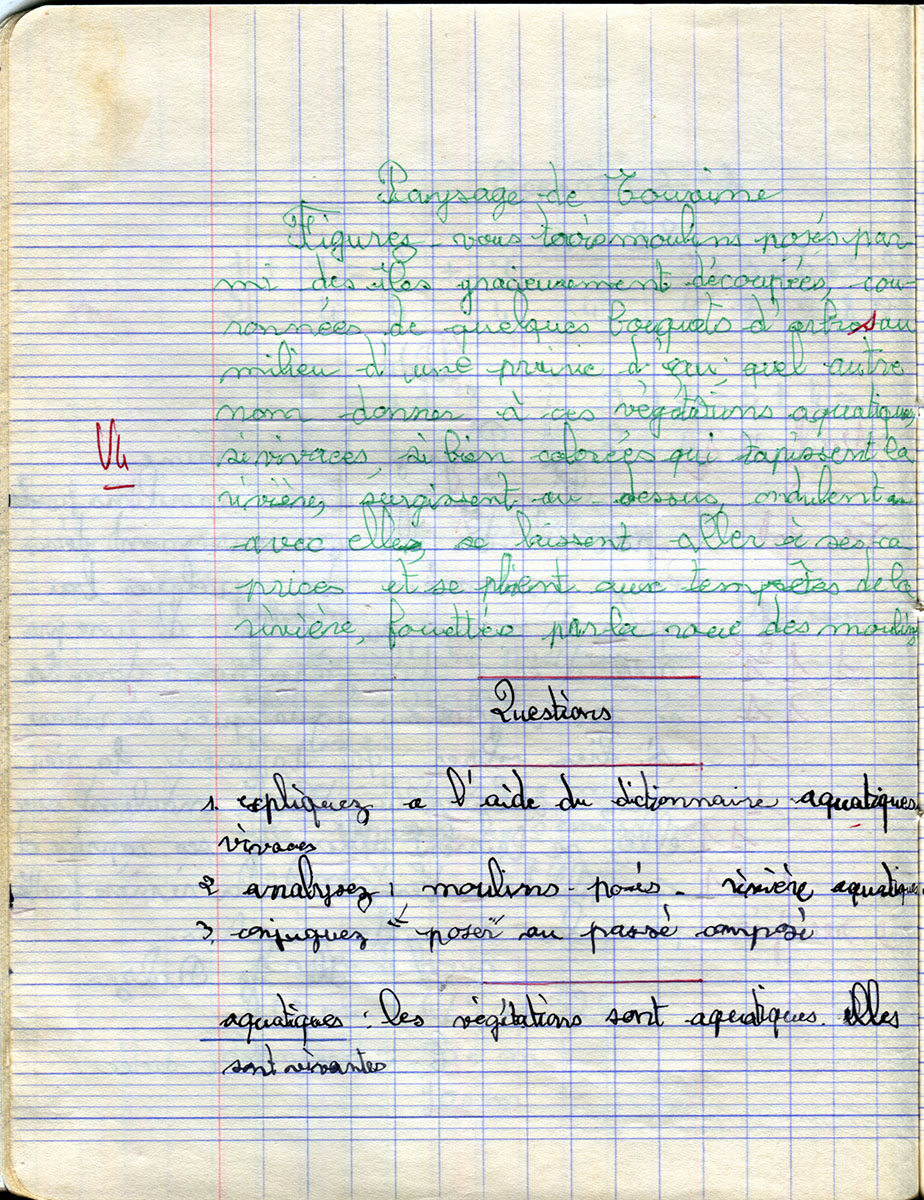 Paysage de Touraine
Figurez-vous trois moulins posés par-
mi des îles gracieusement découpées, cou-
ronnées de quelques bouquets d'arbres au
milieu d'une prairie d'eau quel autre
nom donner à ces végétations aquatiques,
si vivaces, si bien colorées qui tapissent la
rivière, surgissent au-dessus, ondulent
avec elle, se laissent aller à ses ca
prices et se plient aux tempêtes de la
rivière, fouettée par la roue des moulins
Vu
Questions
1. expliquez a l'aide du dictionnaire aquatiques,
vivaces
2 analysez : moulins - posés - rivière aquatiques
3, conjuguez "poser" au passé composé
aquatiques : les végétations sont aquatiques. elles
sont vivantes